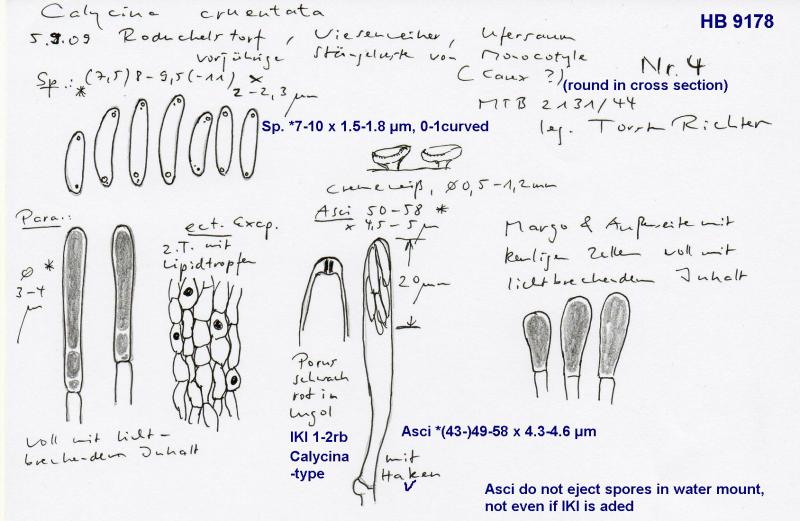 Calycina cruentata
HB 9178
5.9.09 Roduchelstorf, Wiesenweiher, Ufersaum
vorjährige Stängelreste von Monocotyle
(Caux ?)
Nr. 4
(round in cross section)
Sp.: * (7,5) 8-9,5 (-11) x
2-2,3 µm
MTB 2131/44
leg. Torsten Richter
Sp. *7-10 x 1.5-1.8 µm, 0-1curved
cremeweiß, ø 0,5-1,2mm
Para.:
ø *
3-4
µ
ect. Excip.
z.T. mit
Lipidtropfen
Asci 50-58 *
x 4,5-5 µm
20 µm
Margo & Außenseite mit
keuligen Zellen voll mit
lichtbrechendem Inhalt
Porus
schwach
rot in
Lugol
IKI 1-2rb
Calycina
-type
Asci *(43-)49-58 x 4.3-4.6 µm
voll mit licht-
brechendem Inhalt
mit
Haken
Asci do not eject spores in water mount,
not even if IKI is aded